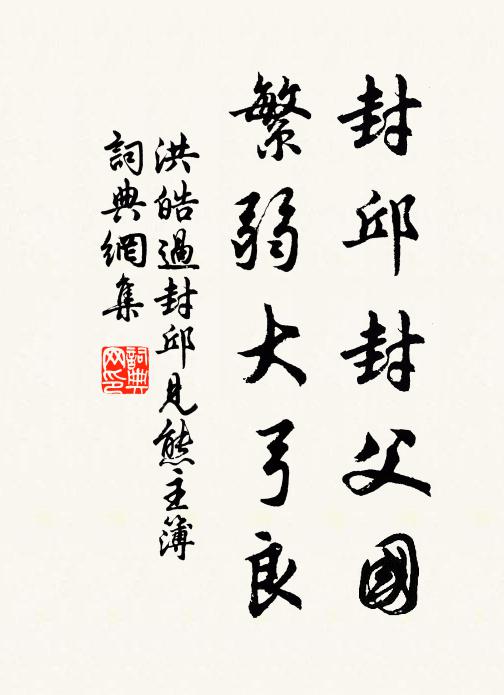 封邱封父國
繁弱大弓良
洪皓過封邱見熊主簿
詞典網集
詞典网印